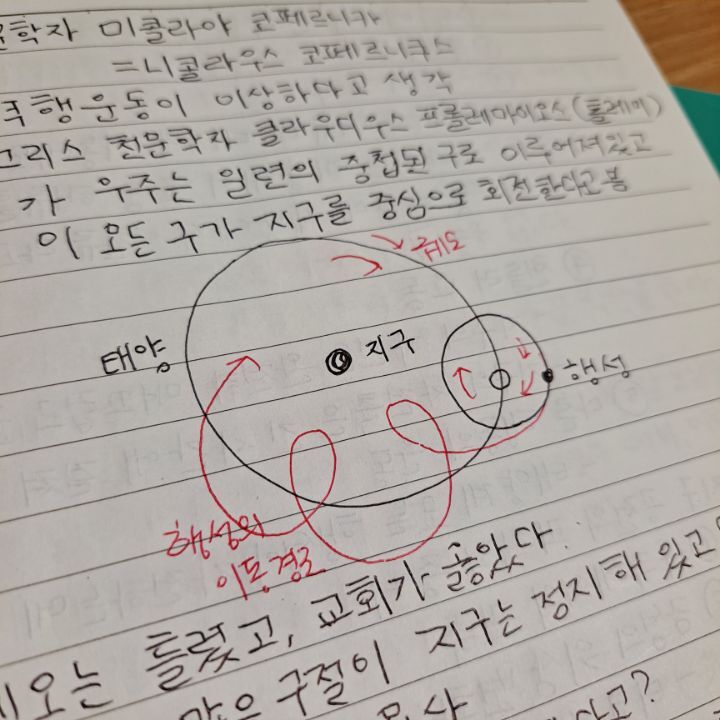 문학자 미콜라야 코페르니카
=니콜라우스 코페르니쿠스
역행운동이 이상하다고 생각
그리스 천문학자 클라우디우스 프톨레마이오스(톨레미)
가 우주는 일련의 중첩된 구로 이루어져있고
이 모든 구가 지구를 중심으로 회전한다고 봄
궤도
태양
지구
행성
행성의
이동경로
오는 틀렸고, 교회가 옳았다.
많은 구절이 지구는 정지해 있고
다고?